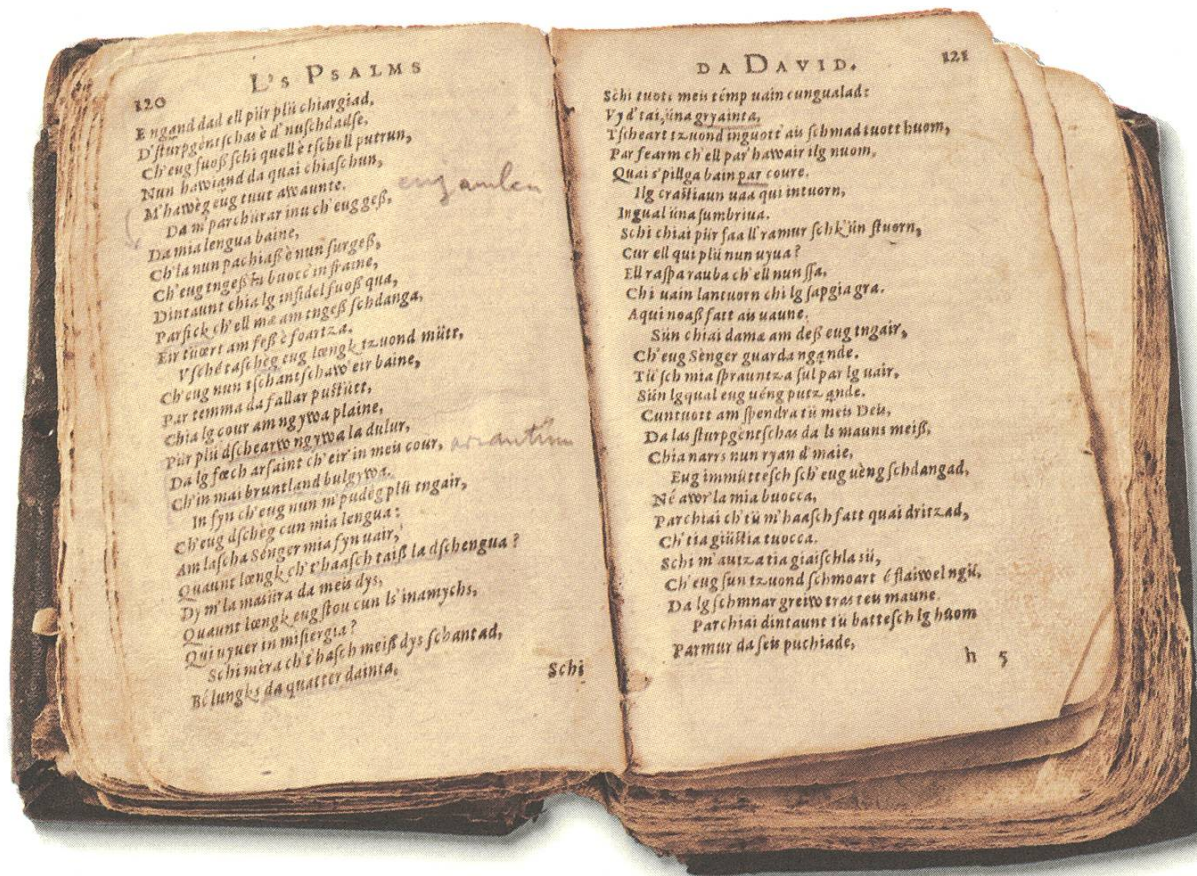 120
L's PSALMS
Engand dad ell pür plü chiargiad,
D'ſturpgèntſchas è d'nuſchdadſe,
Ch'eug ſuoß ſchi quell è tſchell putrun,
Nun hawiand da quai chiaſchun,
M'hawèg eug tuut awaunte.
eug amlen
Da m'parchürar inu ch'eug geß,
Da mia lengua baine,
Ch'la nun pachiaß è nun ſurgeß,
Ch'eug tngeß in buocc'in fraine,
Dintaunt chia lg infidel ſuoß qua,
Parſick ch'ell mæ am tngeß ſchdanga,
Eir tüært am feß è foartza.
Vſché taſchèg eug lœngk tzuond mütt,
Ch'eug nun tſchantſchaw' eir baine,
Par temma da fallar puſtütt,
Chia lg cour am ngywa plaine,
Pür plü dſchearwo ngywa la dulur,
Da lg fœch arſaint ch'eir' in meu cour,
Ch'in mai bruntland bulgywa.
In ſyn ch'eug nun m'pudèg plü tngair,
Ch'eug dſchèg cun mia lengua:
Am laſcha Sènger mia fyn uair,
Quaunt lœngk ch't'haaſch taiß la dſchengua?
Dy m'la maſüra da meis dys,
Quaunt lœngk eug ſtou cun ls'inamychs,
Qui uyuer in miſiergia?
Schi mèra ch't'haſch meiß dys ſchantad,
Bé lungks da quatter dainta,
Schi
DA DAVID.
121
Schi tuott meis témp uain cungualad:
Vyd'tai, üna gryainta,
Tſcheart tzuond inguott' ais ſchmad tuott huom,
Par fearm ch'ell par' hawair ilg nuom,
Quai s'pillga bain par coure.
Ilg craſtiaun uaa qui intuorn,
Ingual üna ſumbriua.
Schi chiai pür faa ll'ramur ſchk'ün ſtuorn,
Cur ell qui plü nun uyua?
Ell raſpa rauba ch'ell nun ſſa,
Chi uain lantuorn chi lg ſapgia gra.
Aqui noaß fatt ais uaune.
Sün chiai dama am deß eug tngair,
Ch'eug Sènger guarda ngande.
Tü ſch mia ſprauntza ſul par lg uair,
Sün lgqual eug uèng putzande.
Cuntuott am ſpendra tü meis Deis,
Da las ſturpgèntſchas da ls mauns meiß,
Chia narrs nun ryan d'maie,
Eug immütteſch ſch'eug uèng ſchdangad,
Né awr' la mia buocca,
Parchiai ch'tü m'haaſch fatt quai dritzad,
Ch'tia giüſtia tuocca.
Schi m'autza tia giaiſchla sü,
Ch'eug ſun tzuond ſchmoart é flaiwel ngü,
Da lg ſchmnar greiw tras teu maune.
Parchiai dintaunt tü batteſch lg huom
Parmur da ſeis puchiade,
h 5